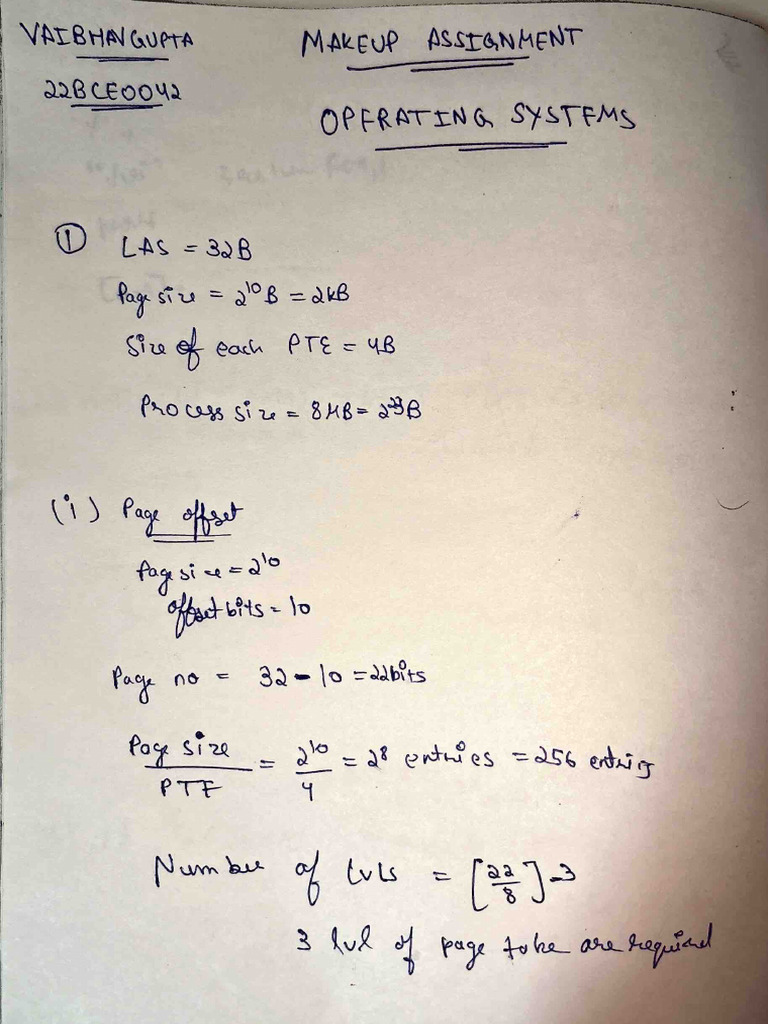 VAIBHAV GUPTA MAKEUP ASSIGNMENT
22BCE0042
OPERATING SYSTEMS
① LAS = 32B
Page size = 2¹⁰B = 2kB
Size of each PTE = 4B
Process size = 8MB = 2²³B
(i) Page offset
Page size = 2¹⁰
offset bits = 10
Page no = 32 - 10 = 22bits
Page size / PTE = 2¹⁰ / 4 = 2⁸ entries = 256 entries
Number of lvls = [22/8] = 3
3 lvl of page table are required